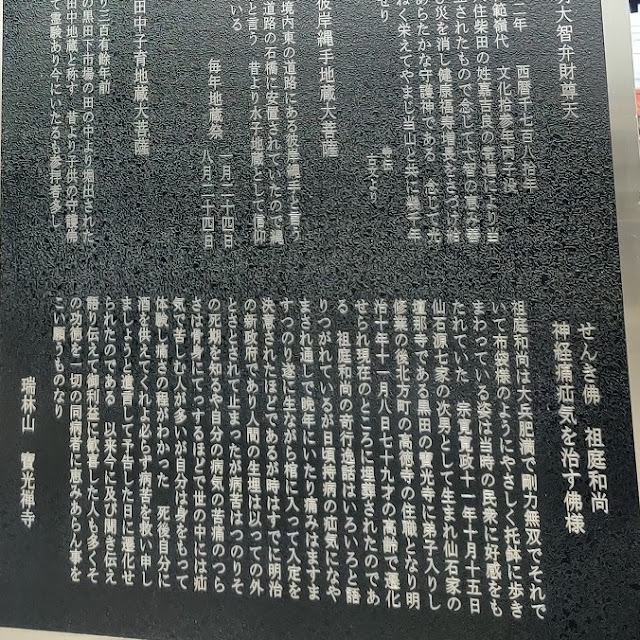 大智弁財尊天
二年 西暦千七百八拾年
範嶺代 文化拾参年丙子没
住柴田の姓嘉吉良の寄進により当
されたもので念じて
災を消し健康福楽増長をさづけ給
あらたかな守護神である 念じて光
ねく栄えてやまじ当山と共に幾千年
せり
古文より
彼岸縄手地蔵大菩薩
境内東の道路にある彼岸縄手と言う
道路の石橋に安置されていたので縄
と言う 昔より水子地蔵として信仰
いる
毎年地蔵祭 一月二十四日
八月二十四日
田中子育地蔵大菩薩
り三百有餘年前
の黒田下市場の田の中より堀出された
田中地蔵と称す 昔より子供の守護佛
て霊験あり今にいたるも参拝者多し
せんき佛 祖庭和尚
神経痛疝気を治す佛様
祖庭和尚は大兵肥満で剛力無双でそれで
いて布袋様のようにやさしく托鉢に歩き
まわっている姿は当時の民衆に好感をも
たれていた 宗寛寛政十一年十月十五日
仙石源七家の次男として生まれ仙石家の
壇那寺である黒田の寶光寺に弟子入りし
修業の後北方町の高徳寺の住職となり明
治十年十一月八日七十九才の高齢で遷化
せられ現在のところに埋葬されたのであ
る 祖庭和尚の奇行逸話はいろいろと語
りつがれているが日頃持病の疝気になや
まされ通しで晩年にいたり痛みはますま
すつのり遂に生ながら棺に入って入定を
決意されたほどであるが時はすでに明治
の新政府であり人間の生埋は以っての外
とさとされて止まったが病苦はつのりそ
の死期を知るや自分の病気の苦痛のつら
さは骨身にてっするほどで世の中には疝
気で苦しむ人が多いが自分は身をもって
体験し痛さの程がわかった 死後自分に
酒を供えてくれよ必らず病苦を救い申し
ましょうと遺言して予告した日に遷化せ
られたのである 以来今に及び聞き伝え
語り伝えて御利益に歓喜した人も多くそ
の功徳を一切の同病者に恵みあらん事を
こい願うものなり
瑞林山 寶光禅寺